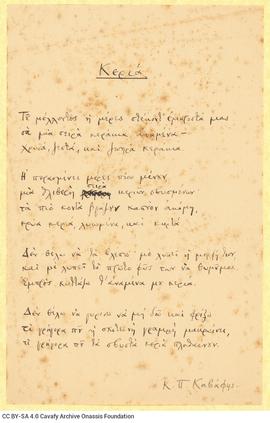 Κεριά
Τα μέλλοντος η μέρες στέκοντ' εμπροστά μας
σα μια σειρά κεράκια αναμένα —
χρυσά, ζεστά, και ζωηρά κεράκια.
Η περασμένες μέρες πίσω μένουν,
μια θλιβερή σειρά κεριών σβυσμένων·
τα πιο κοντά βγάζουν καπνόν ακόμη,
κρύα κεριά, λυωμένα, και κυρτά.
Δεν θέλω να τα βλέπω· με λυπεί η μορφή των,
και με λυπεί το πρώτο φως των να θυμούμαι.
Εμπρός κυττάζω τ' αναμένα μου κεριά.
Δεν θέλω να γυρίσω να μη διω και φρίξω
τι γρήγορα που η σκοτεινή γραμμή μακραίνει,
τι γρήγορα που τα σβυστά κεριά πληθαίνουν.
Κ. Π. Καβάφης.
CC BY-SA 4.0 Cavafy Archive Onassis Foundation